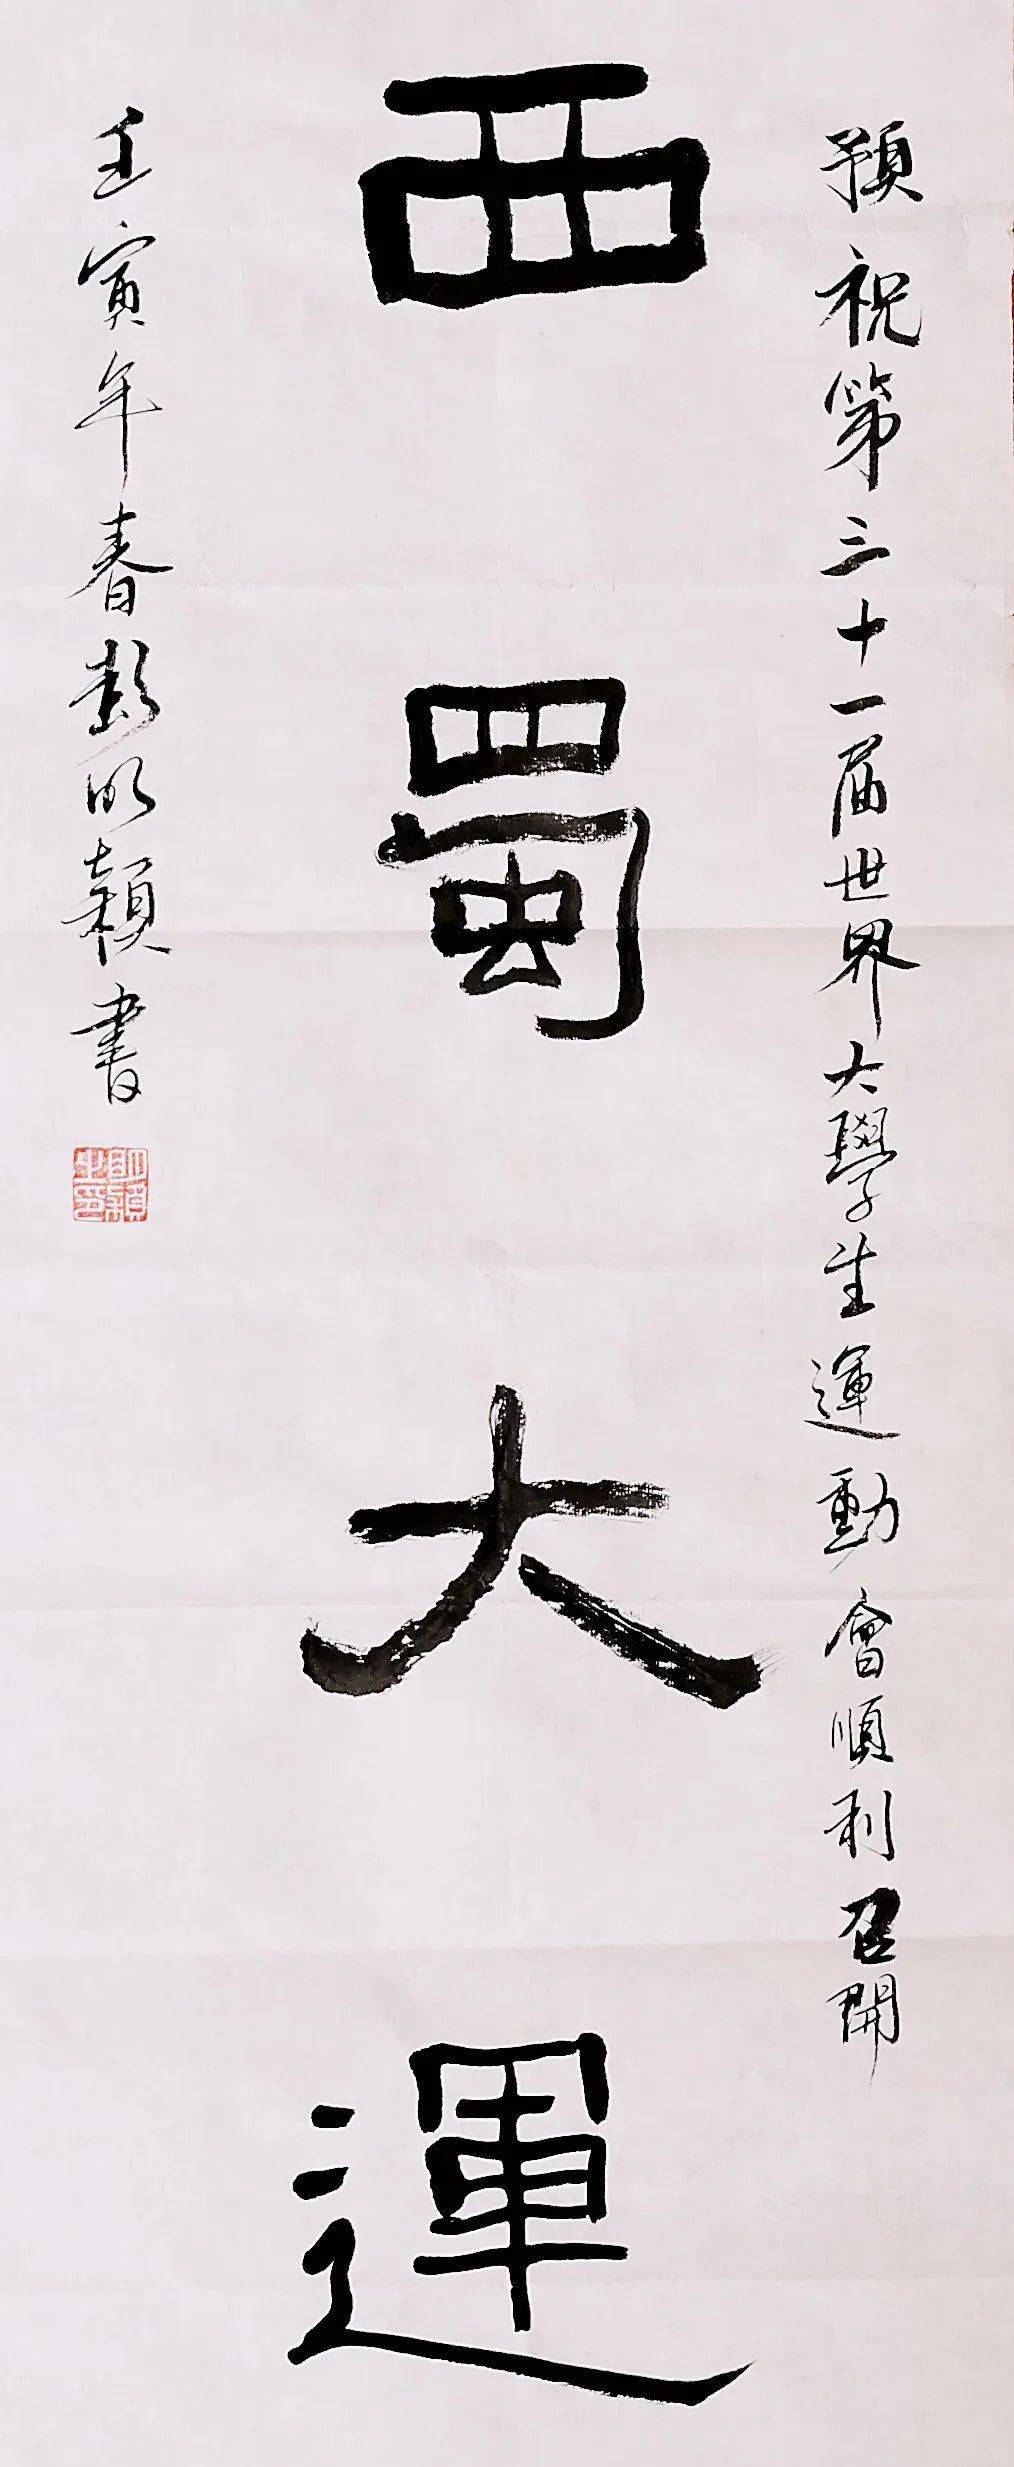 預祝第三十一届世界大學生運動會順利召開
西蜀大運
壬寅年春彭明穎書
明穎之印